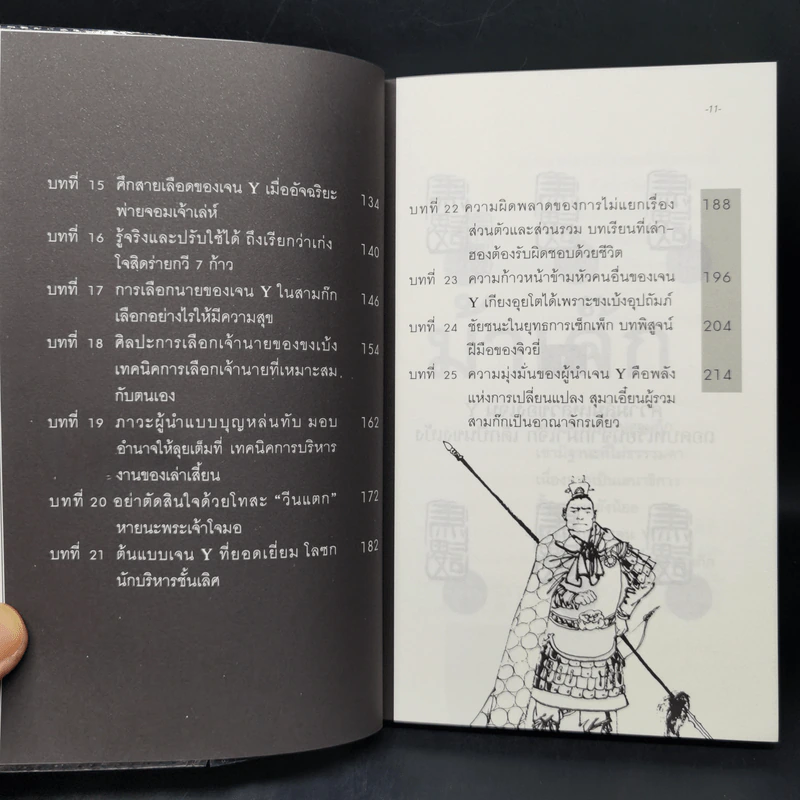 บทที่ 15 ศึกสายเลือดของเจน Y เมื่ออัจฉริยะ 134
พ่ายจอมเจ้าเล่ห์
บทที่ 16 รู้จริงและปรับใช้ได้ ถึงเรียกว่าเก่ง 140
โจสิดร่ายกวี 7 ก้าว
บทที่ 17 การเลือกนายของเจน Y ในสามก๊ก 146
เลือกอย่างไรให้มีความสุข
บทที่ 18 ศิลปะการเลือกเจ้านายของขงเบ้ง 154
เทคนิคการเลือกเจ้านายที่เหมาะสม
กับตนเอง
บทที่ 19 ภาวะผู้นำแบบบุญหล่นทับ มอบ 162
อำนาจให้ลุยเต็มที่ เทคนิคการบริหาร
งานของเล่าเสี้ยน
บทที่ 20 อย่าตัดสินใจด้วยโทสะ “วีนแตก” 172
หายนะพระเจ้าโจมอ
บทที่ 21 ต้นแบบเจน Y ที่ยอดเยี่ยม โลซก 182
นักบริหารชั้นเลิศ
-11-
บทที่ 22 ความผิดพลาดของการไม่แยกเรื่อง 188
ส่วนตัวและส่วนรวม บทเรียนที่เล่า-
ฮองต้องรับผิดชอบด้วยชีวิต
บทที่ 23 ความก้าวหน้าข้ามหัวคนอื่นของเจน 196
Y เกียงอุยโตได้เพราะขงเบ้งอุปถัมภ์
บทที่ 24 ชัยชนะในยุทธการเซ็กเพ็ก บทพิสูจน์ 204
ฝีมือของจิวยี่
บทที่ 25 ความมุ่งมั่นของผู้นำเจน Y คือพลัง 214
แห่งการเปลี่ยนแปลง สุมาเอี๋ยนผู้รวม
สามก๊กเป็นอาณาจักรเดียว